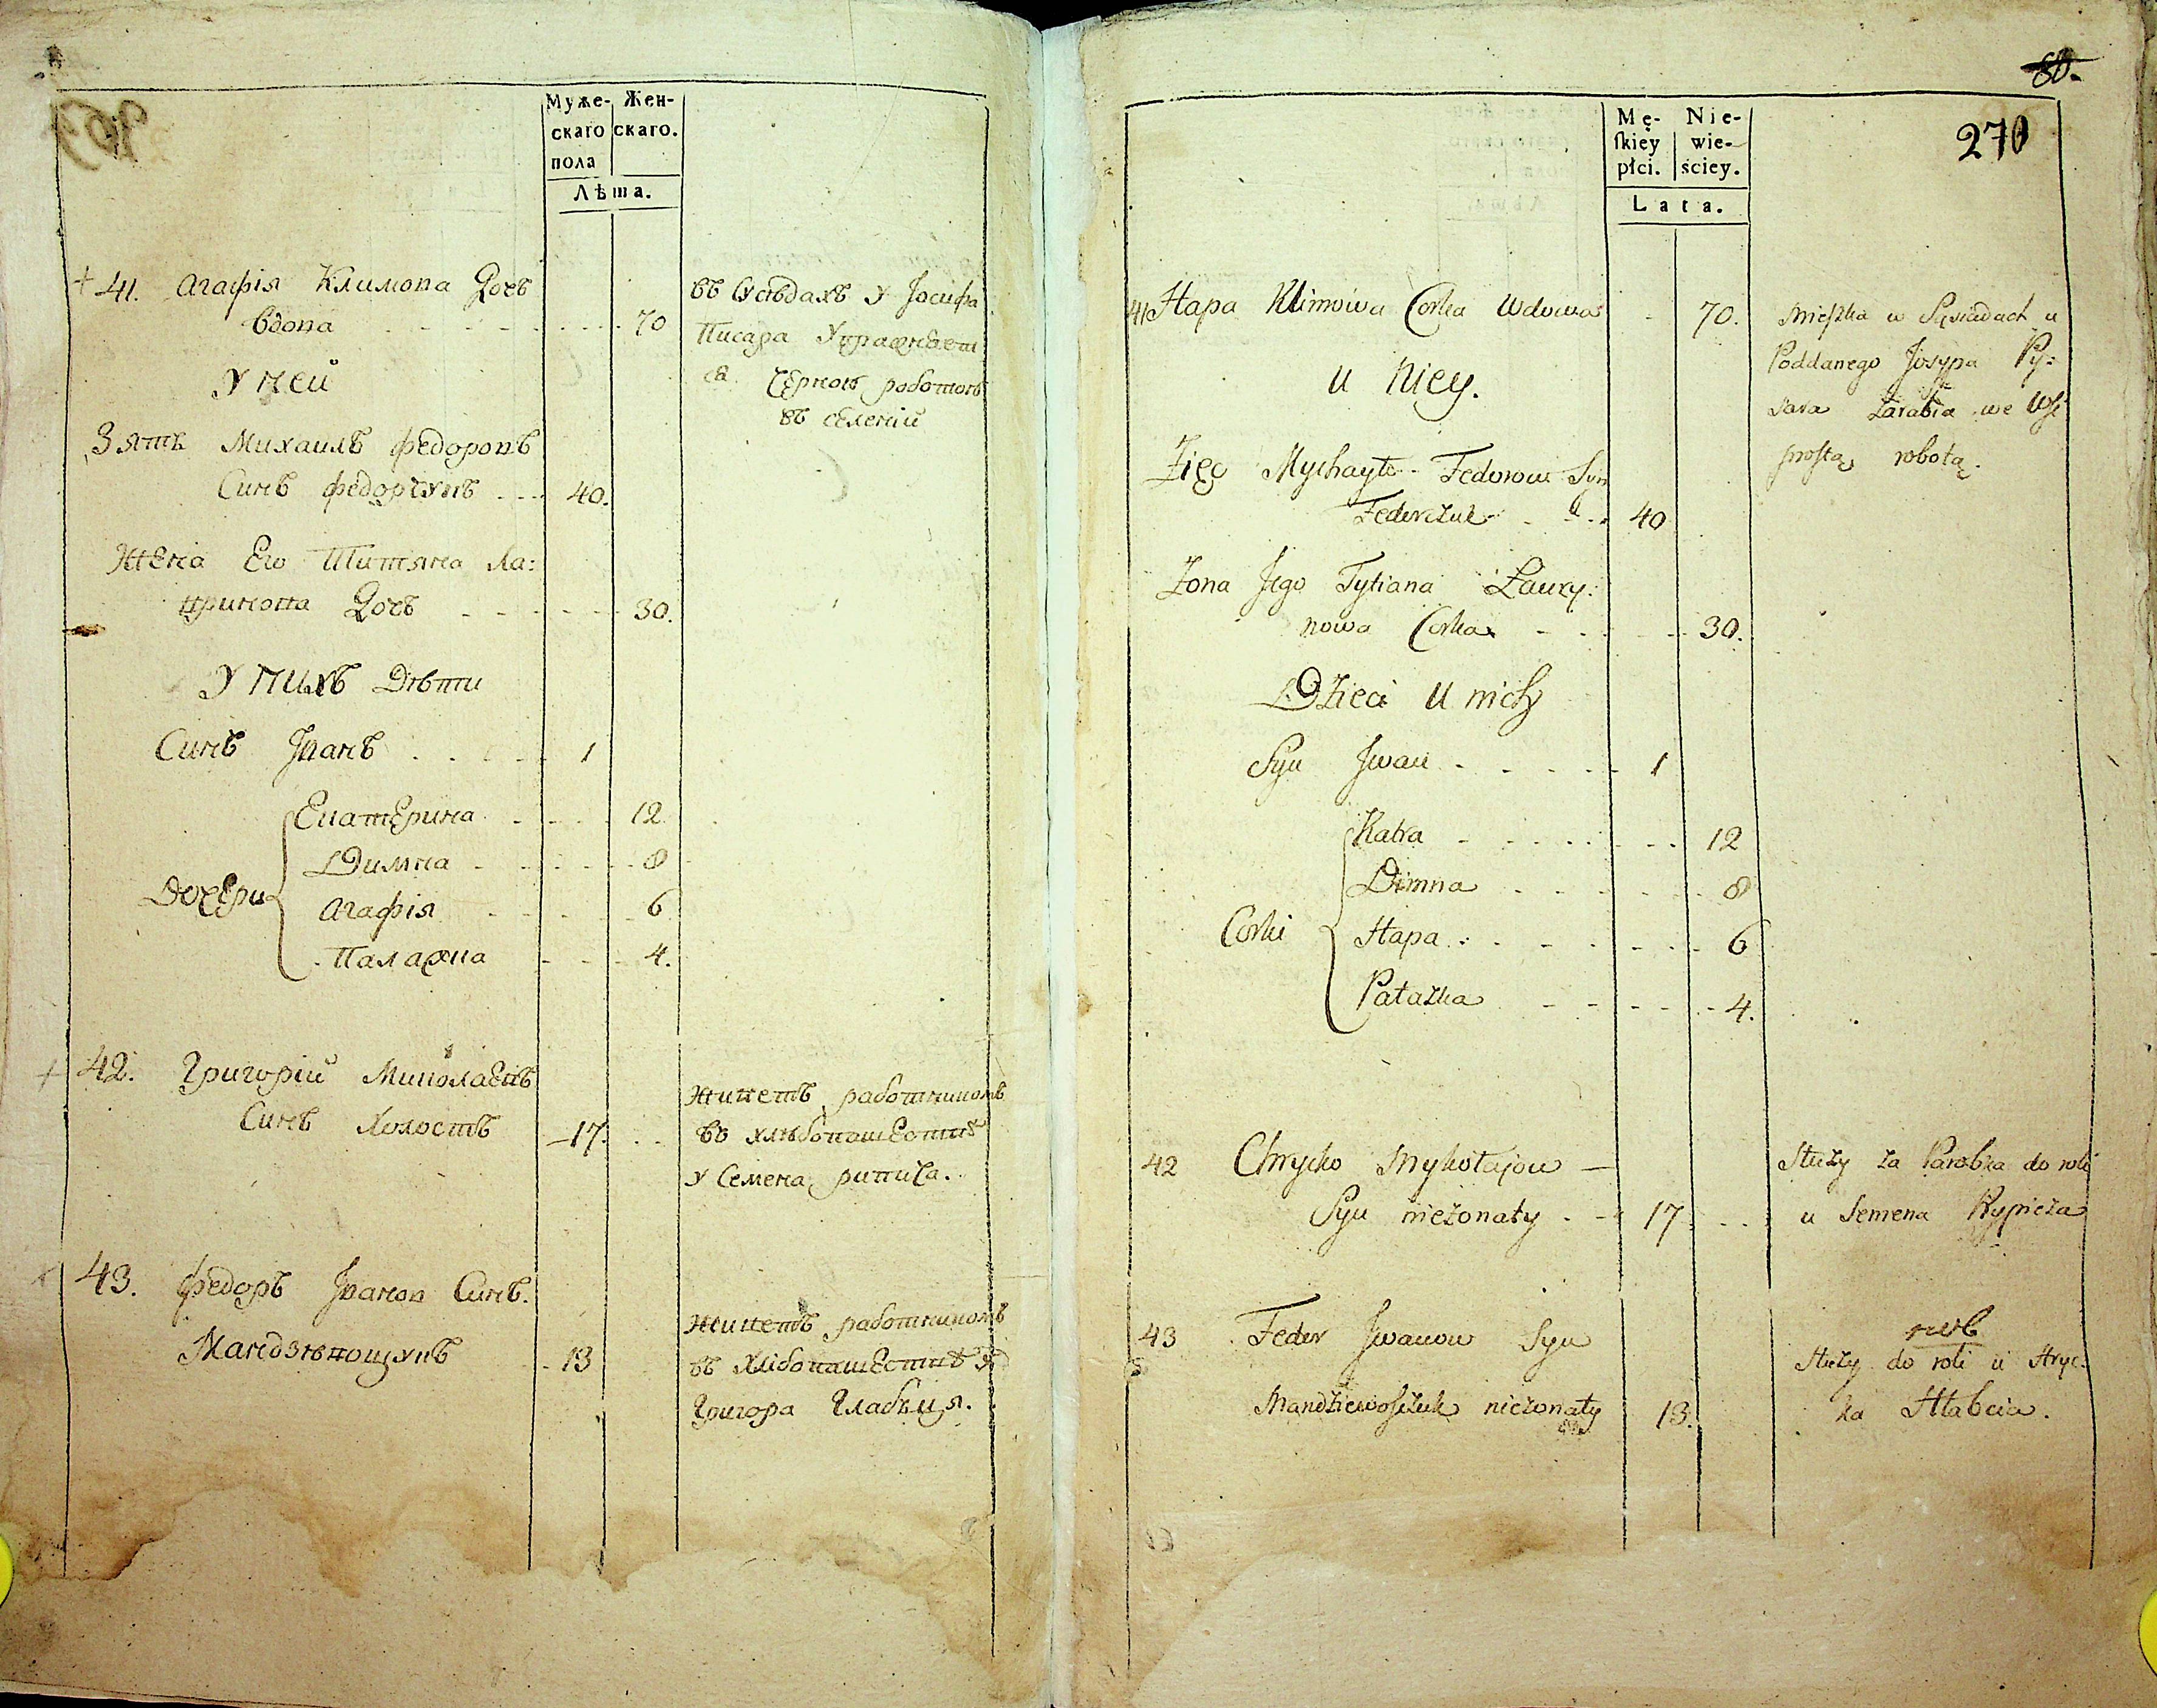 Муже- Жен-
скаго скаго.
пола
Лѣта.
+ 41. Агафія Климова Дочь
вдова 70
въ Сусѣдахъ у Іосифа
Писара Упражнѣет
ся Чернои роботои
въ селеніи
У неи
Зять Михаилъ Федоровъ
Синъ Федорчукъ 40.
Жена Его Титяна Ла:
вринова Дочь 30.
У нихъ Дѣти
Синъ Іванъ 1
Дочери
Екатерина 12
Димна 8
Агафія 6
Палажка 4.
+ 42. Григорій Миколаевъ
Синъ Холостъ 17.
Живетъ работникомъ
въ хлѣбопашествѣ
у Семена рипича.
43. Федоръ Іванов Синъ.
Мандзѣвощукъ 13
Живетъ работникомъ
въ Хлібопашествѣ У
Григора Глабця.
80.
270
Mę- Nie-
skiey wie-
płci. ściey.
Lata.
41 Hapa Klimowa Corka Wdowa 70.
Mieszka w Sąsiadach u
Poddanego Josypa Py:
sara Zarabia we Wsi
prostą robotą.
u Niey.
Zięć Mychayło Fedorow Syn
Federczuk 40
Zona Jego Tytiana Ławry:
nowa Corka 30.
Dzieci u nich
Syn Jwan 1
Corki
Katra 12
Dimna 8
Hapa 6
Pałazka 4.
42 Chrycko Mykołajow
Syn nieżonaty 17
Służy za Parobka do roli
u Semena Rypicza
43 Feder Jwanow Syn
Mandziewoszczuk nieżonaty 13.
Służy do roli u Hryc:
ka Hłabcia.